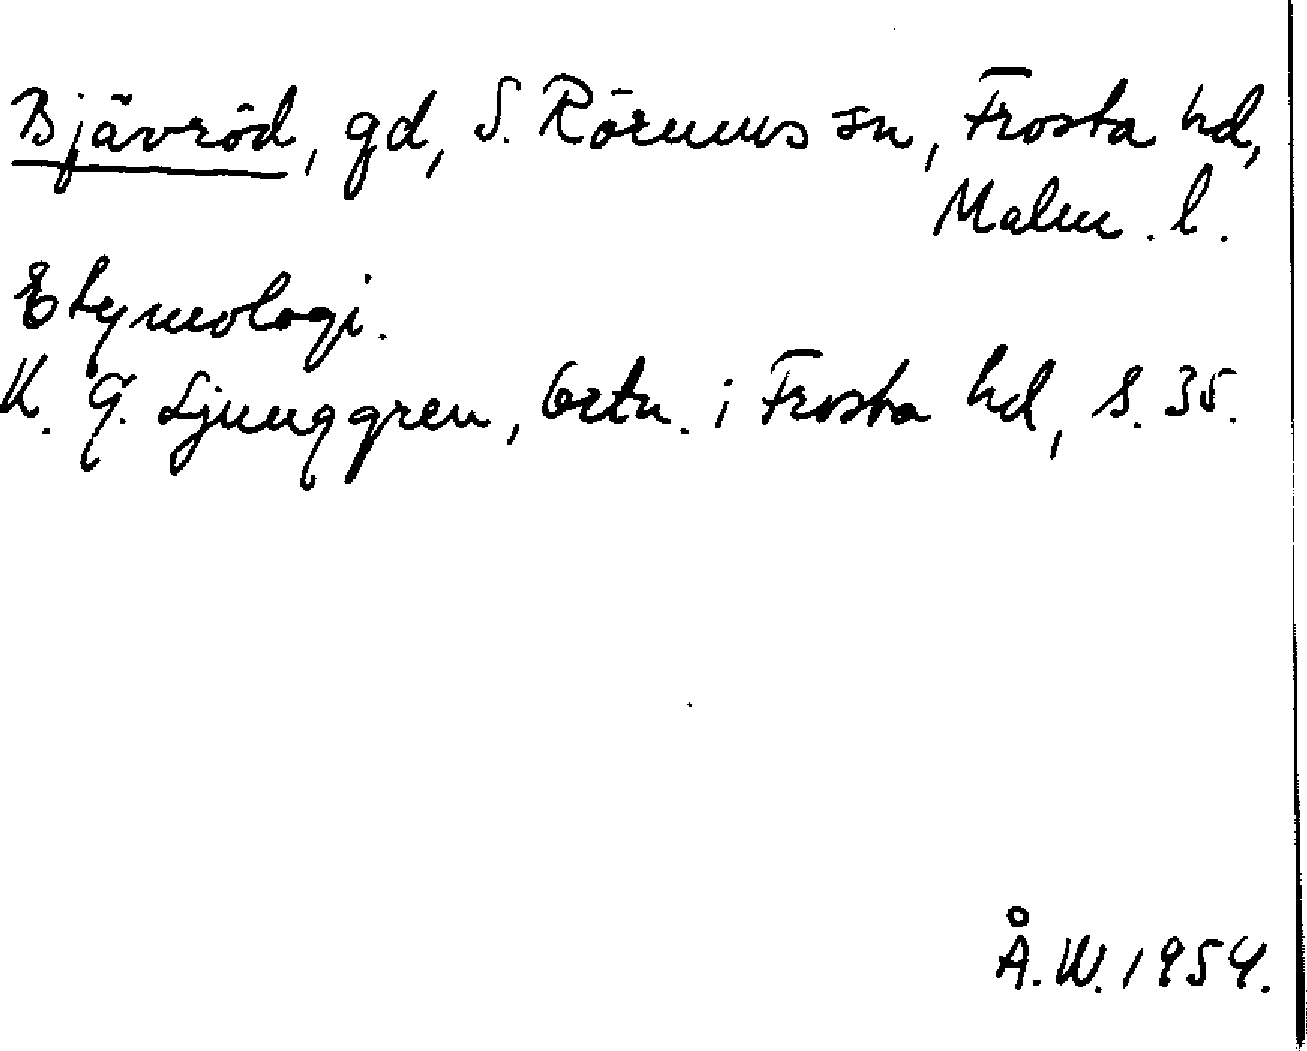 Bjävröd, gd, S. Rörums sn, Frosta hd,
Malm. l.
Etymologi.
K. G. Ljunggren, Ortn. i Frosta hd, s. 35.
Å. W. 1954.